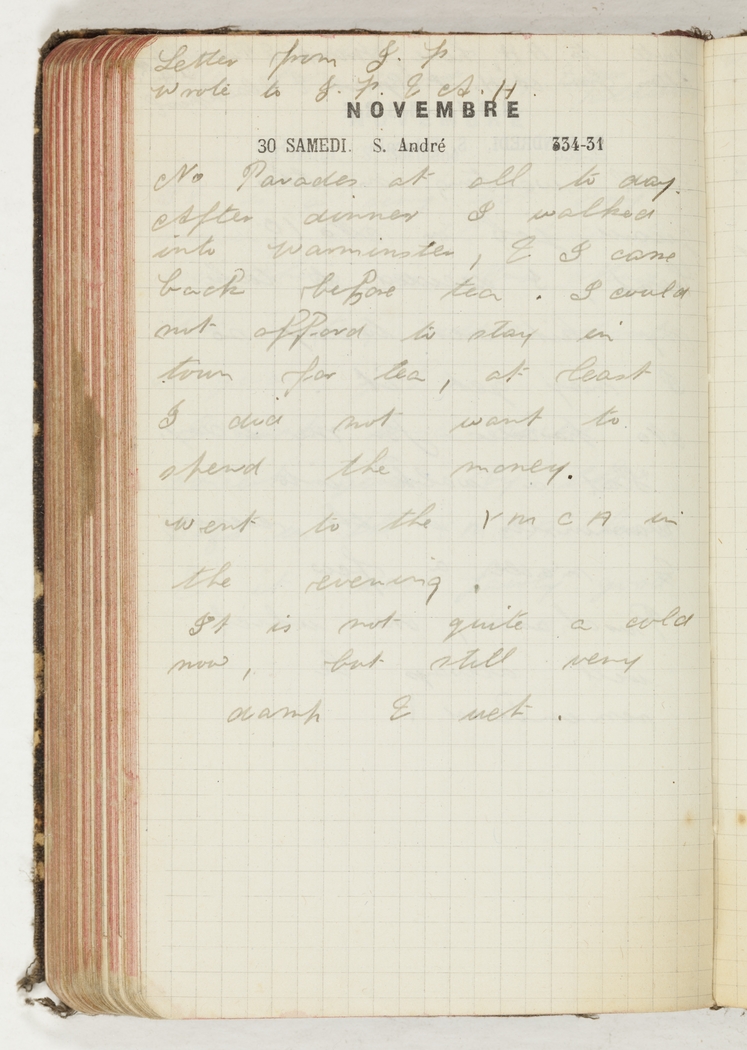 Letter from J. P.
Wrote to J. P. & A. H.
NOVEMBRE
30 SAMEDI. S. André 334-31
No Parades at all to day.
After dinner I walked
into Warminster, & I came
back before tea. I could
not afford to stay in
town for tea, at least
I did not want to
spend the money.
Went to the Y M C A in
the evening.
It is not quite a cold
now, but still very
damp & wet.